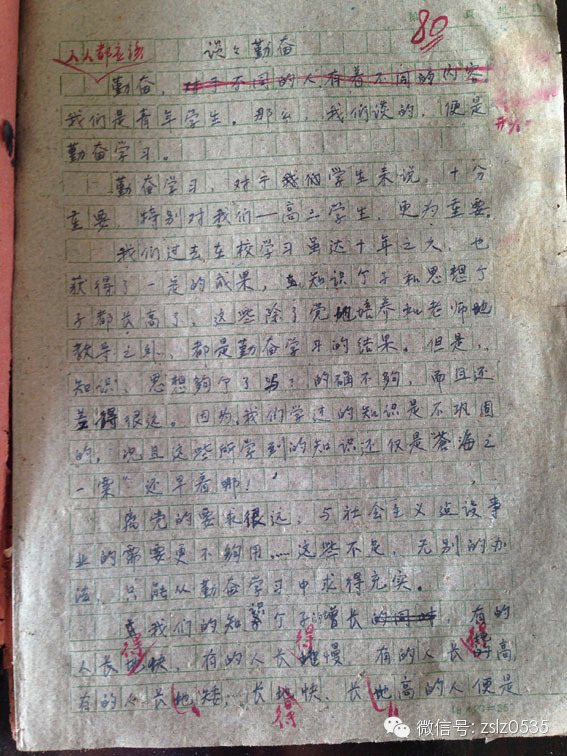 80
人人都应该
谈谈勤奋
勤奋，对于不同的人有着不同的内容
我们是青年学生。那么，我们谈的，便是
勤奋学习。
勤奋学习，对于我们学生来说，十分
重要，特别对我们一高二学生，更为重要。
我们过去在校学习虽达十年之久，也
获得了一定的成果，在知识个子和思想个
子都长高了，这些除了党地培养和老师地
教导之外，都是勤奋学习的结果。但是，
知识、思想够个了吗？的确不够，而且还
差得很远。因为，我们学过的知识是不巩固
的，况且这些所学到的知识还仅是“苍海之
一粟”还早着哪！
离党的要求很远，与社会主义建设事
业的需要更不够用……这些不足，无别的办
法，只能从勤奋学习中求得充实。
我们的知识个子的增长的同时，有的
人长地快，有的人长地慢 有的人长的高
得 得 得
有的人长地矮；长地快、长地高的人便是
得
微信号: zslz0535